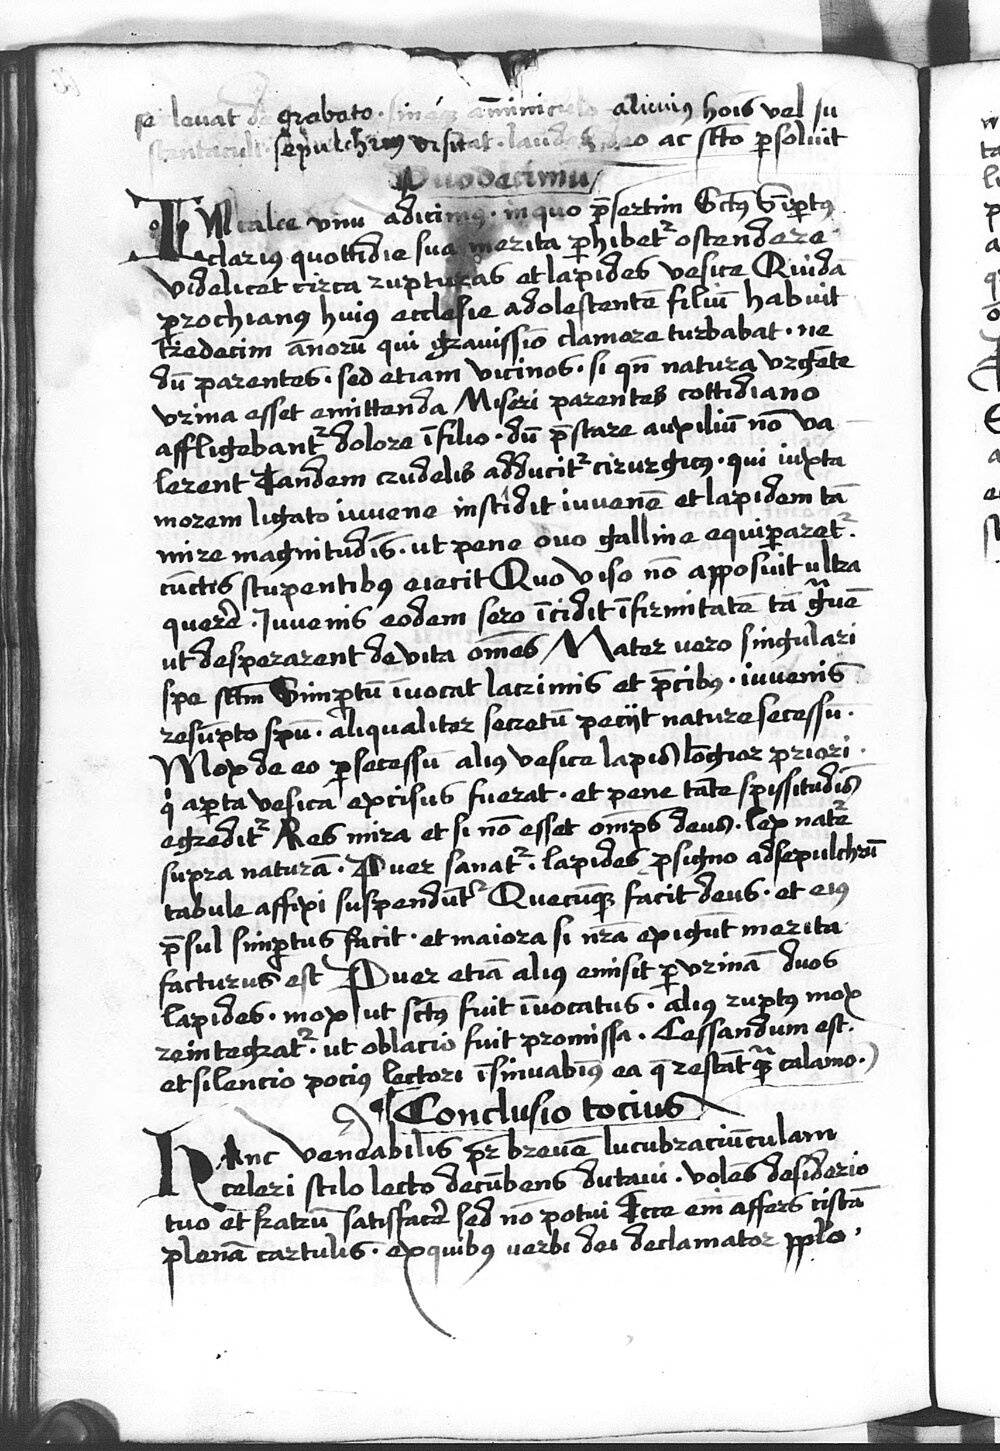 se levat de grabato · sineqꝫ āminiculo alicuiꝰ hoīs vel su
stentaculi · sepulchrum visitat · laudes deo ac sctō psoluit
Duodecimū
In calce vnū adicimus · in quo p̄sertim Sctūs Simptꝰ
clariꝰ quottidie sua merita phibetʳ ostendere
videlicet circa rupturas et lapides vesice Quidā
prochianꝰ huiꝰ ecclesie adolestentē filiū habuit
tredecim ānorū qui gravissīo clamore turbabat · ne
dū parentes · sed etiam vicinos · si qn̄ natura vrgēte
vrina esset emittenda Miseri parentes cottidiano
affligebantʳ dolore ī filio · dū p̄stare auxiliū nō va
lerent Tandem crudelis adducitʳ cirurgicꝰ · qui iuxta
morem ligato iuvene inscidit iuvenē et lapidem tā
mire magnitudīs · ut pene ovo galline equiparetʳ ·
cūctis stupentibꝰ eiecit Quo viso nō apposuit ultra
querē · Iuvenis eodem sero īcidit īfirmitatē tā gᵃuē
ut desperarent de vita omēs Mater vero singulari
spe sctm̄ Simptū īvocat lacrimis et p̄cibꝰ · iuvenis
resūpto spū · aliqualiter secretū peciit nature secessū ·
Mox de eo p secessū aliꝰ vesice lapis lōgior priori ·
q apta vesica excisus fuerat · et pene tāte spissitudīs
egreditʳ Res mira et si nō esset omps deus · lex natē
supra naturā · Puer sanatʳ · lapides p signo ad sepulchrū
tabule affixi suspendūtʳ Quecūqꝫ facit deus · et eiꝰ
p̄sul simptus facit · et maiora si nr̄a exigūt merita
facturus est Puer etiā aliꝰ emisit p vrinā duos
lapides · mox ut sctūs fuit īvocatus · aliꝰ ruptꝰ mox
reintegratʳ · ut oblacio fuit promissa · Cessandum est ·
et silencio pociꝰ lectori īsinuabimꝰ ea q restāt qᵃ calamo ·
Conclusio tocius
Hanc venerabilis pr̄ brevē lucubraciūculam
celeri stilo lecto decūbens dictavi · volēs desiderio
tuo et fratrū satisfacē sed nō potui Ecce em̄ affers cistā
plenā cartulis · ex quibꝰ verbi dei declamator pplo